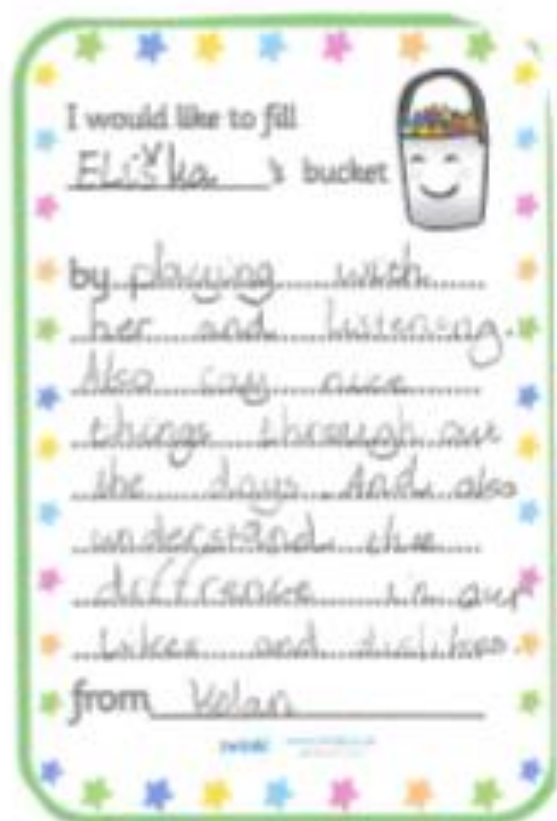 I would like to fill
Eliška 's bucket
by playing with
her and listening.
Also say nice
things through out
the days. And also
understand the
diffrence in our
likes and dislikes.
from Kolan
twinkl